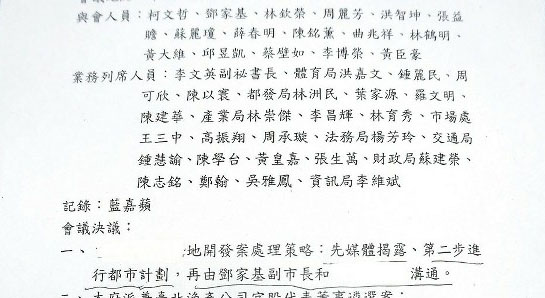 與會人員：柯文哲、鄧家基、林欽榮、周麗芳、洪智坤、張益
贍、蘇麗瓊、薛春明、陳銘薰、曲兆祥、林鶴明、
黃大維、邱昱凱、蔡壁如、李博榮、黃臣豪
業務列席人員：李文英副祕書長、體育局洪嘉文、鍾麗民、周
可欣、陳以寰、都發局林洲民、葉家源、羅文明、
陳建華、產業局林崇傑、李昌輝、林育秀、市場處
王三中、高振翔、周承璇、法務局楊芳玲、交通局
鍾慧諭、陳學台、黃皇嘉、張生萬、財政局蘇建榮、
陳志銘、鄭翰、吳雅鳳、資訊局李維斌
記錄：藍嘉蘋
會議決議：
一、地開發案處理策略：先媒體揭露、第二步進
行都市計劃，再由鄧家基副市長和 溝通。